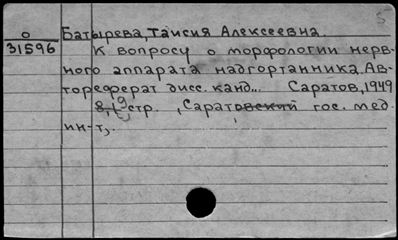 О
31596
Батырева, Таисия Алексеевна.
К вопросу о морфологии нерв-
ного аппарата надгортанника. Ав-
тореферат дисс. канд... Саратов, 1949
стр. , Саратовский гос. мед.
ин-т,.